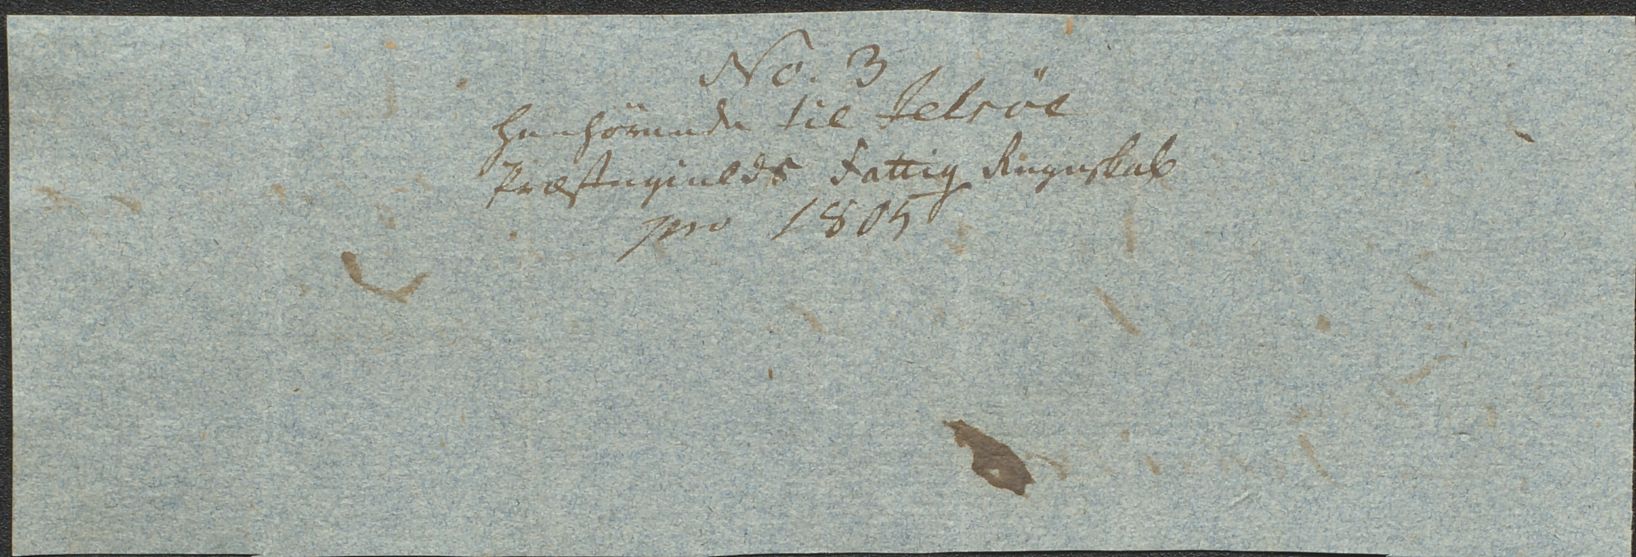 No. 3
henhörende til Jelsöe
Præstegields Fattig Regnskab
pro 1805